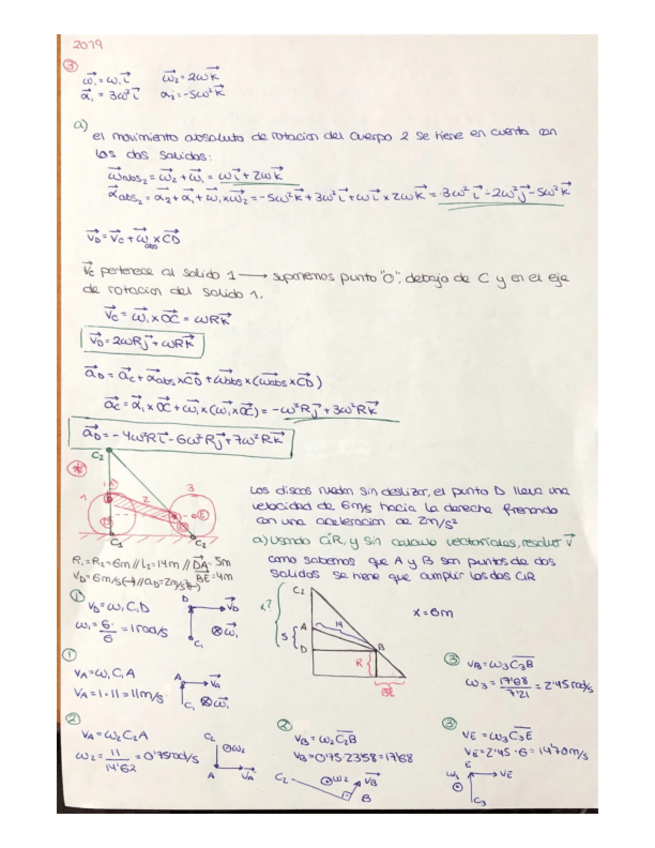 2019
③
ω₁ = ωi    ω₂ = 2ωk
α₁ = 3ω²i    α₂ = -5ω²k
a)
el movimiento absoluto de rotacion del cuerpo 2 se tiene en cuenta con
los dos solidos:
ωabs₂ = ω₂ + ω₁ = ωi + 2ωk
αabs₂ = α₂ + α₁ + ω₁xω₂ = -5ω²k + 3ω²i + ωi x 2ωk = 3ω²i - 2ω²j - 5ω²k
VD = VC + ωabs x CD
VC pertenece al solido 1 → suponemos punto "O", debajo de C y en el eje
de rotacion del solido 1.
VC = ω₁ x OC = ωRk
VD = 2ωRj + ωRk
aD = aC + αabs x CD + ωabs x (ωabs x CD)
aC = α₁ x OC + ω₁ x (ω₁ x OC) = -ω²Rj + 3ω²Rk
aD = -4ω²Ri - 6ω²Rj + 7ω²Rk
C₂
1
A
2
3
D
B
E
C₁
C₂
R₁=R₂=6m // L₂=14m // DA=5m
VD=6m/s(→) // aD=2m/s²(←) BE=4m
Los discos ruedan sin deslizar, el punto D lleva una
velocidad de 6m/s hacia la derecha frenando
con una aceleracion de 2m/s²
a) Usando CIR, y sin calculo vectoriales, resolver V
como sabemos que A y B son puntos de dos
solidos se tiene que cumplir los dos CIR
① VD = ω₁ C₁D
ω₁ = 6/6 = 1 rad/s
D
VD
C₁
⊗ω₁
C₂
x?
A
14
5
D
B
R
x = 6m
① VA = ω₁ C₁A
VA = 1·11 = 11m/s
A
VA
C₁
⊗ω₁
③ VB = ω₃ C₃B
ω₃ = 17'68/7'21 = 2'45 rad/s
② VA = ω₂ C₂A
ω₂ = 11/14'62 = 0'75 rad/s
C₂
⊙ω₂
A
VA
② VB = ω₂ C₂B
VB = 0'75·23'58 = 17'68
C₂
⊙ω₂
VB
B
③ VE = ω₃ C₃E
VE = 2'45·6 = 14'70 m/s
E
ω₃
⊙
VE
C₃